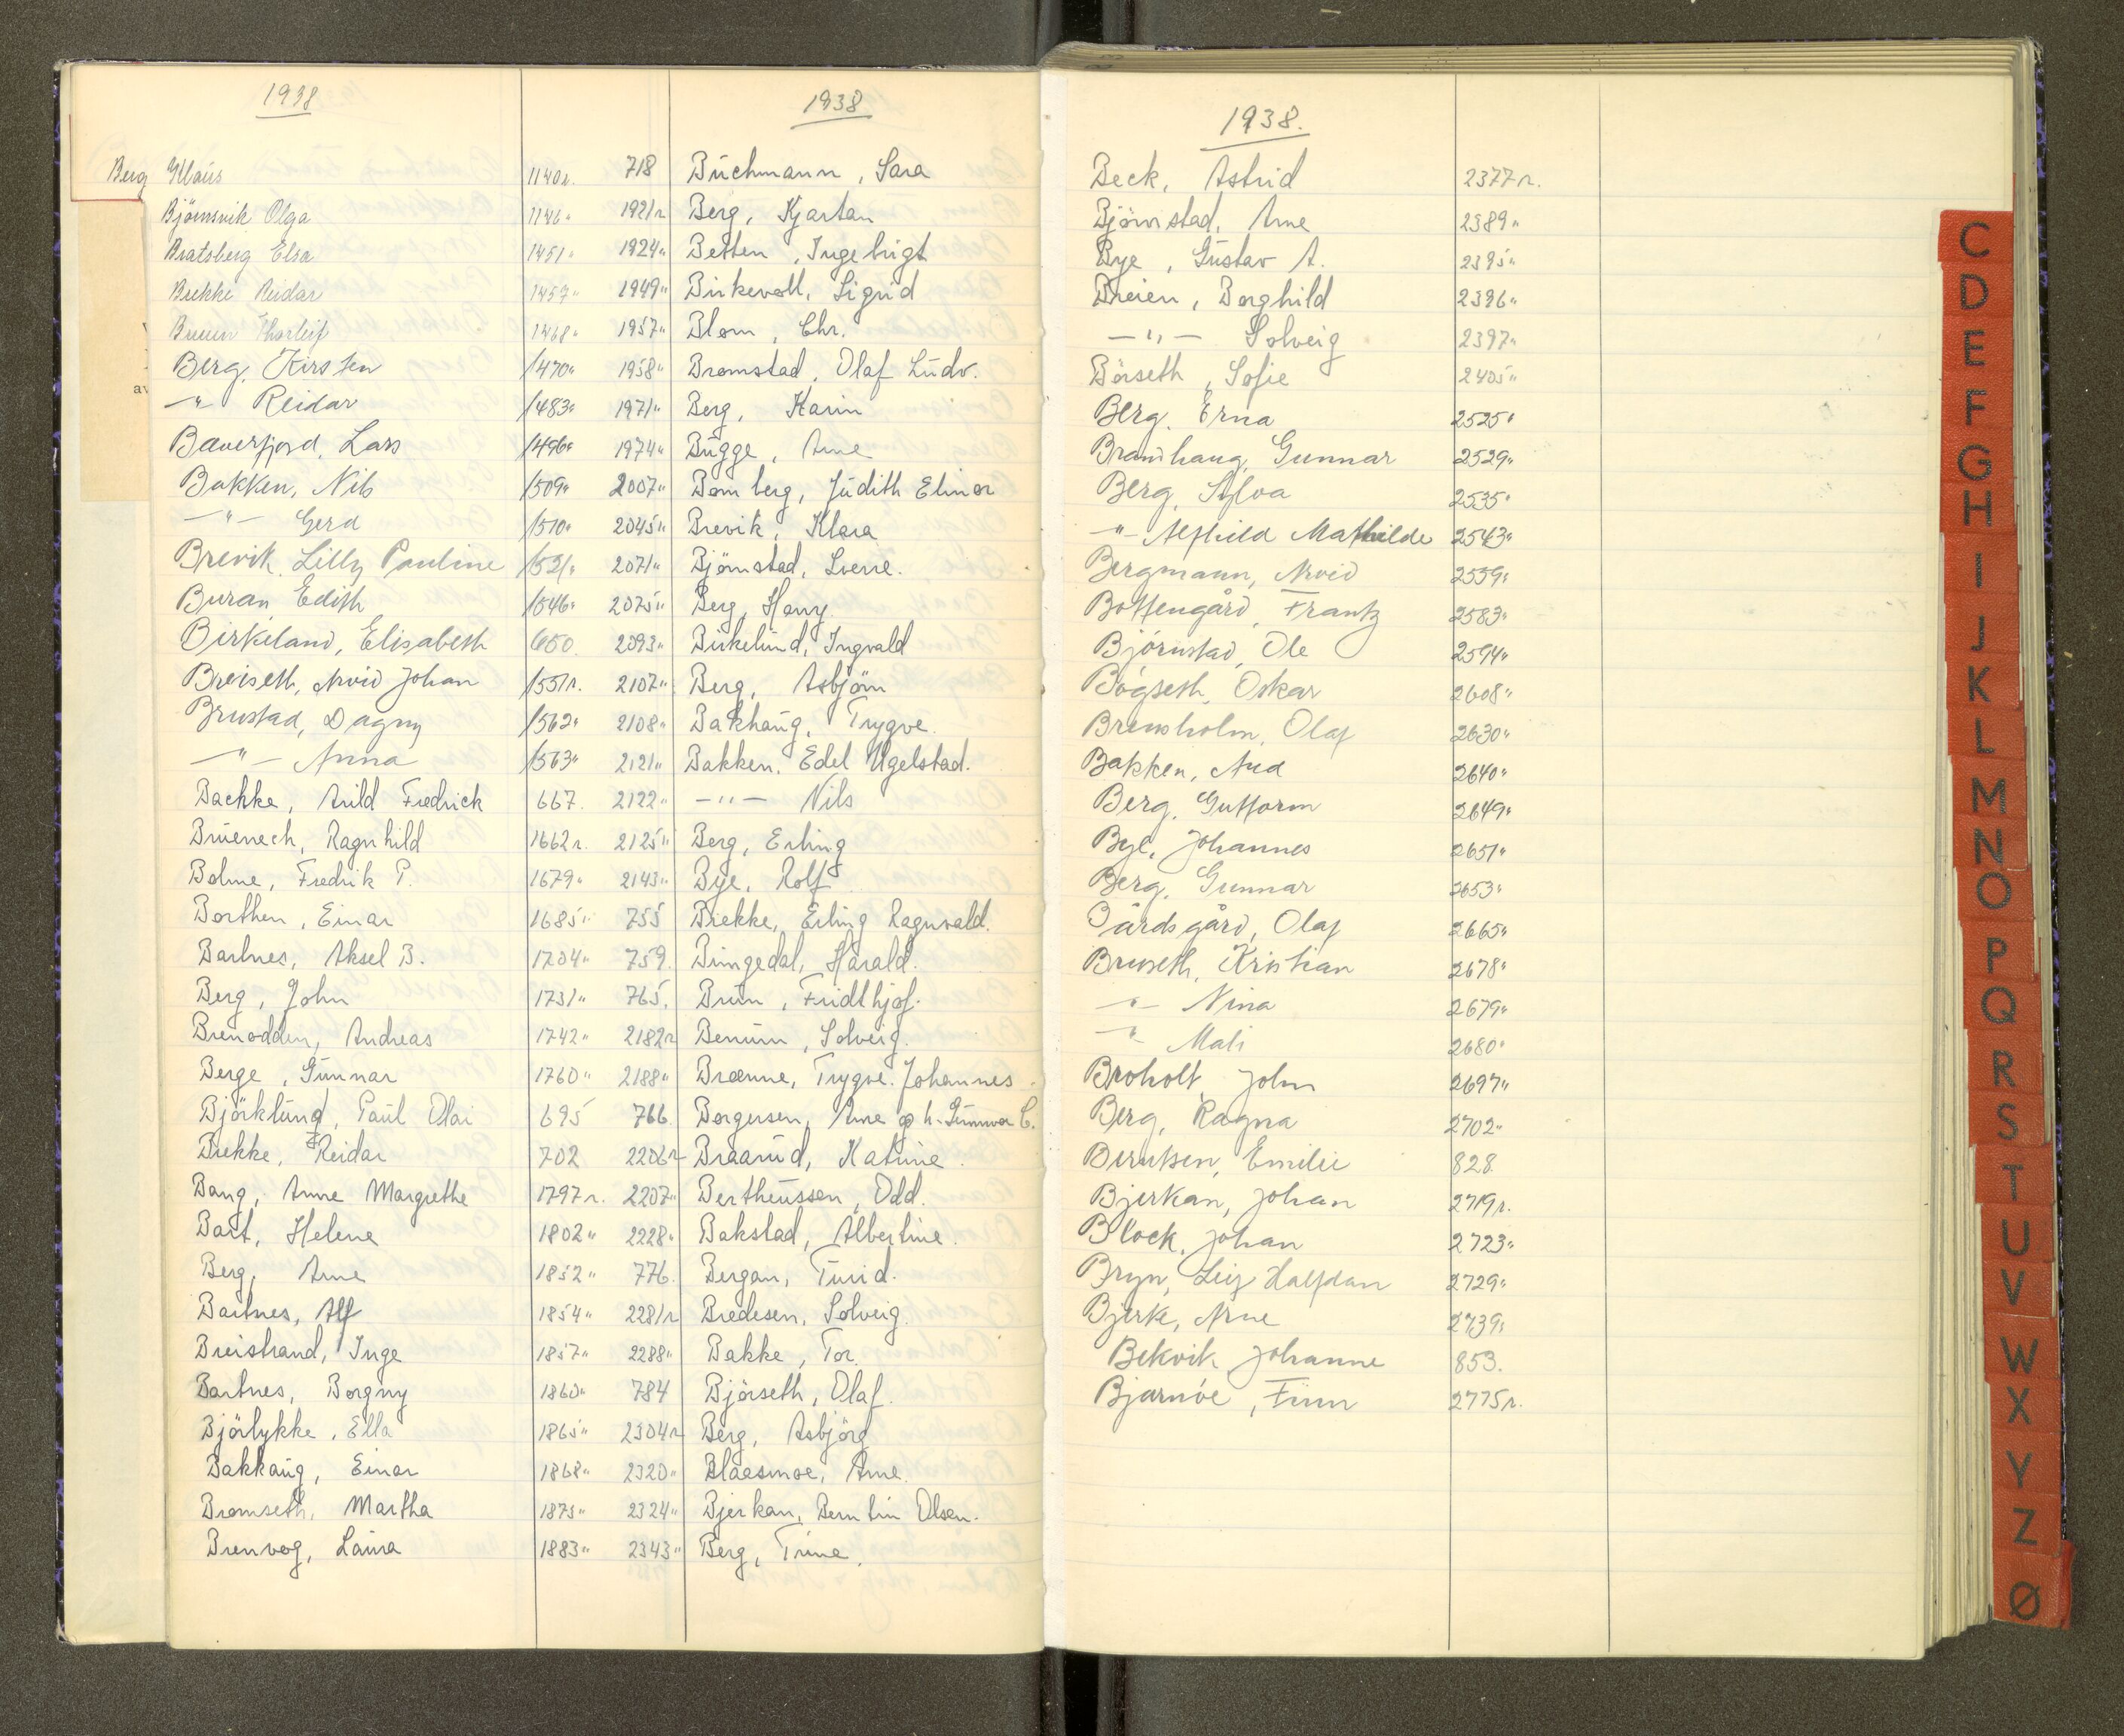 1938
Berg Klaus 1140r.
Björnsvik Olga 1146"
Bratsberg Elsa 1451"
Brekke Reidar 1457"
Bruun Thorleif 1468"
Berg, Kirsten 1470"
-"- Reidar 1483"
Baverfjord, Lars 1496"
Bakken, Nils 1509"
-"- Gerd 1510"
Brevik, Lilly Pauline 1521"
Buran Edith 1546"
Birkeland, Elisabeth 650.
Breiseth, Arvid Johan 1551r.
Brustad, Dagny 1562"
-"- Anna 1563"
Bachke, Arild Fredrick 667.
Bruenech, Ragnhild 1662r.
Bolme, Fredrik P. 1679"
Borthen, Einar 1685"
Bartnes, Aksel B. 1704"
Berg, John 1731"
Brenodden, Andreas 1742"
Berge, Gunnar 1760"
Björklund, Paul Olai 695
Brekke, Reidar 702
Bang, Anne Margrethe 1797r.
Bart, Helene 1802"
Berg, Arne 1852"
Bartnes, Alf 1854"
Breistrand, Inge 1857"
Bartnes, Borgny 1860"
Björlykke, Ella 1865"
Bakkaug, Einar 1868"
Bromseth, Martha 1875"
Brenvog, Laura 1883"
1938
718 Buchmann, Sara
1921r Berg, Kjartan
1924" Betten, Ingebrigt
1949" Birkevoll, Sigrid
1957" Blom, Chr.
1958" Bromstad, Olaf Ludv.
1971" Berg, Karin
1974" Bugge, Arne
2007" Bomberg, Judith Elinor
2045" Brevik, Klara
2071" Björnstad, Sverre.
2075" Berg, Harry
2093" Birkelund, Ingvald
2107" Berg, Asbjörn
2108" Bakhaug, Trygve.
2121" Bakken, Edel Ugelstad.
2122" -"- Nils
2125" Berg, Erling
2143" Bye, Rolf
755 Brekke, Erling Ragnvald.
759. Bringedal, Harald.
765. Brun, Fridthjof.
2182r Benum, Solveig.
2188" Brænne, Trygve Johannes.
766 Borgersen, Arne og h. Gunvor C.
2206r Braarud, Katrine.
2207" Bertheussen, Odd.
2228" Bakstad, Albertine.
776. Bergan, Turid.
2281r Bredesen, Solveig.
2288" Bakke, Tor.
784 Björseth, Olaf.
2304r Berg, Asbjörg
2320" Blaasmoe, Arne.
2324" Bjerkan, Berntin Olsen.
2343" Berg, Trine.
1938.
Beck, Astrid 2377r.
Björnstad, Arne 2389"
Bye, Gustav A. 2395"
Breien, Borghild 2396"
-"- Solveig 2397"
Börseth, Sofie 2405"
Berg, Erna 2525"
Bramhaug, Gunnar 2529"
Berg, Sylva 2535"
-"- Alfhild Mathilde 2543"
Bergmann, Arvid 2559"
Bottengård, Frantz 2583"
Björnstad, Ole 2594"
Bögseth, Oskar 2608"
Brensholm, Olaf 2630"
Bakken, Aud 2640"
Berg, Guttorm 2649"
Bye, Johannes 2651"
Berg, Gunnar 2653"
Bårdsgård, Olaf 2665"
Bruseth, Kristian 2678"
-"- Nina 2679"
-"- Mali 2680"
Broholt John 2697"
Berg, Ragna 2702"
Berntsen, Emilie 828
Bjerkan, Johan 2719r.
Block, Johan 2723"
Bryn, Leif Halfdan 2729"
Bjerke, Arne 2739"
Bekvik Johanne 853.
Bjarnöe, Finn 2775r.
C
D
E
F
G
H
I
J
K
L
M
N
O
P
Q
R
S
T
U
V
W
X
Y
Z
Ø